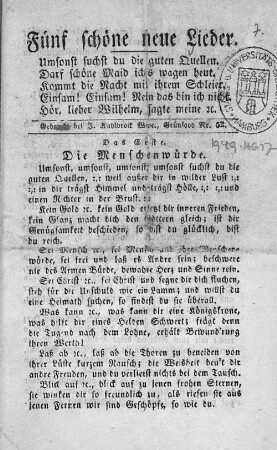 7.
Fünf schöne neue Lieder.
Umsonst suchst du die guten Quellen.
Darf schöne Maid ichs wagen heut.
Kommt die Nacht mit ihrem Schleier.
Einsam! Einsam! Nein das bin ich nicht.
Hör, lieber Wilhelm, sagte meine ꝛc.
Gedruckt bei J. Kahlbrock Wwe., Grünsood Nr. 52.
Das Erste.
Die Menschenwürde.
Umsonst, umsonst, umsonst umsonst suchst du die
guten Quellen, :,: weil außer dir in wilder Lust :,:
:,: in dir trägst Himmel und trägst Hölle, :,: :,: und
einen Richter in der Brust. :,:
Kein Gold ꝛc. kein Gold ersetzt dir inneren Frieden,
kein Glanz macht dich den Göttern gleich; ist dir
Genügsamkeit beschieden, so bist du glücklich, bist
du reich.
Sei Mensch ꝛc., sei Mensch und ihre Menschen-
würde, sei frei und laß es Andre sein; beschwer
nie des Armen Bürde, bewahre Herz und Sinne rein.
Sei Christ ꝛc., sei Christ und sage die dich fluchen,
steh für die Unschuld wie ein Lamm; und willst
du eine Heimath suchen, so findest du sie überall.
Was kann ꝛc., was kann dir eine Königskrone,
was hilft dir eines Helden Schwert; frägt denn
die Tugend nach dem Lohne, erhält Bewund'rung
ihren Werth!
Laß ab ꝛc., laß ab die Thoren zu beneiden von
ihrer Lüste kurzem Rausch; die Weisheit beu't dir
andre Freuden, und du verlierst nichts bei dem Tausch.
Blick auf ꝛc., blick auf zu jenen frohen Sternen,
sie winken dir so freundlich zu, als riefen sie aus
jenen Fernen wir sind Geschöpfe, so wie du.